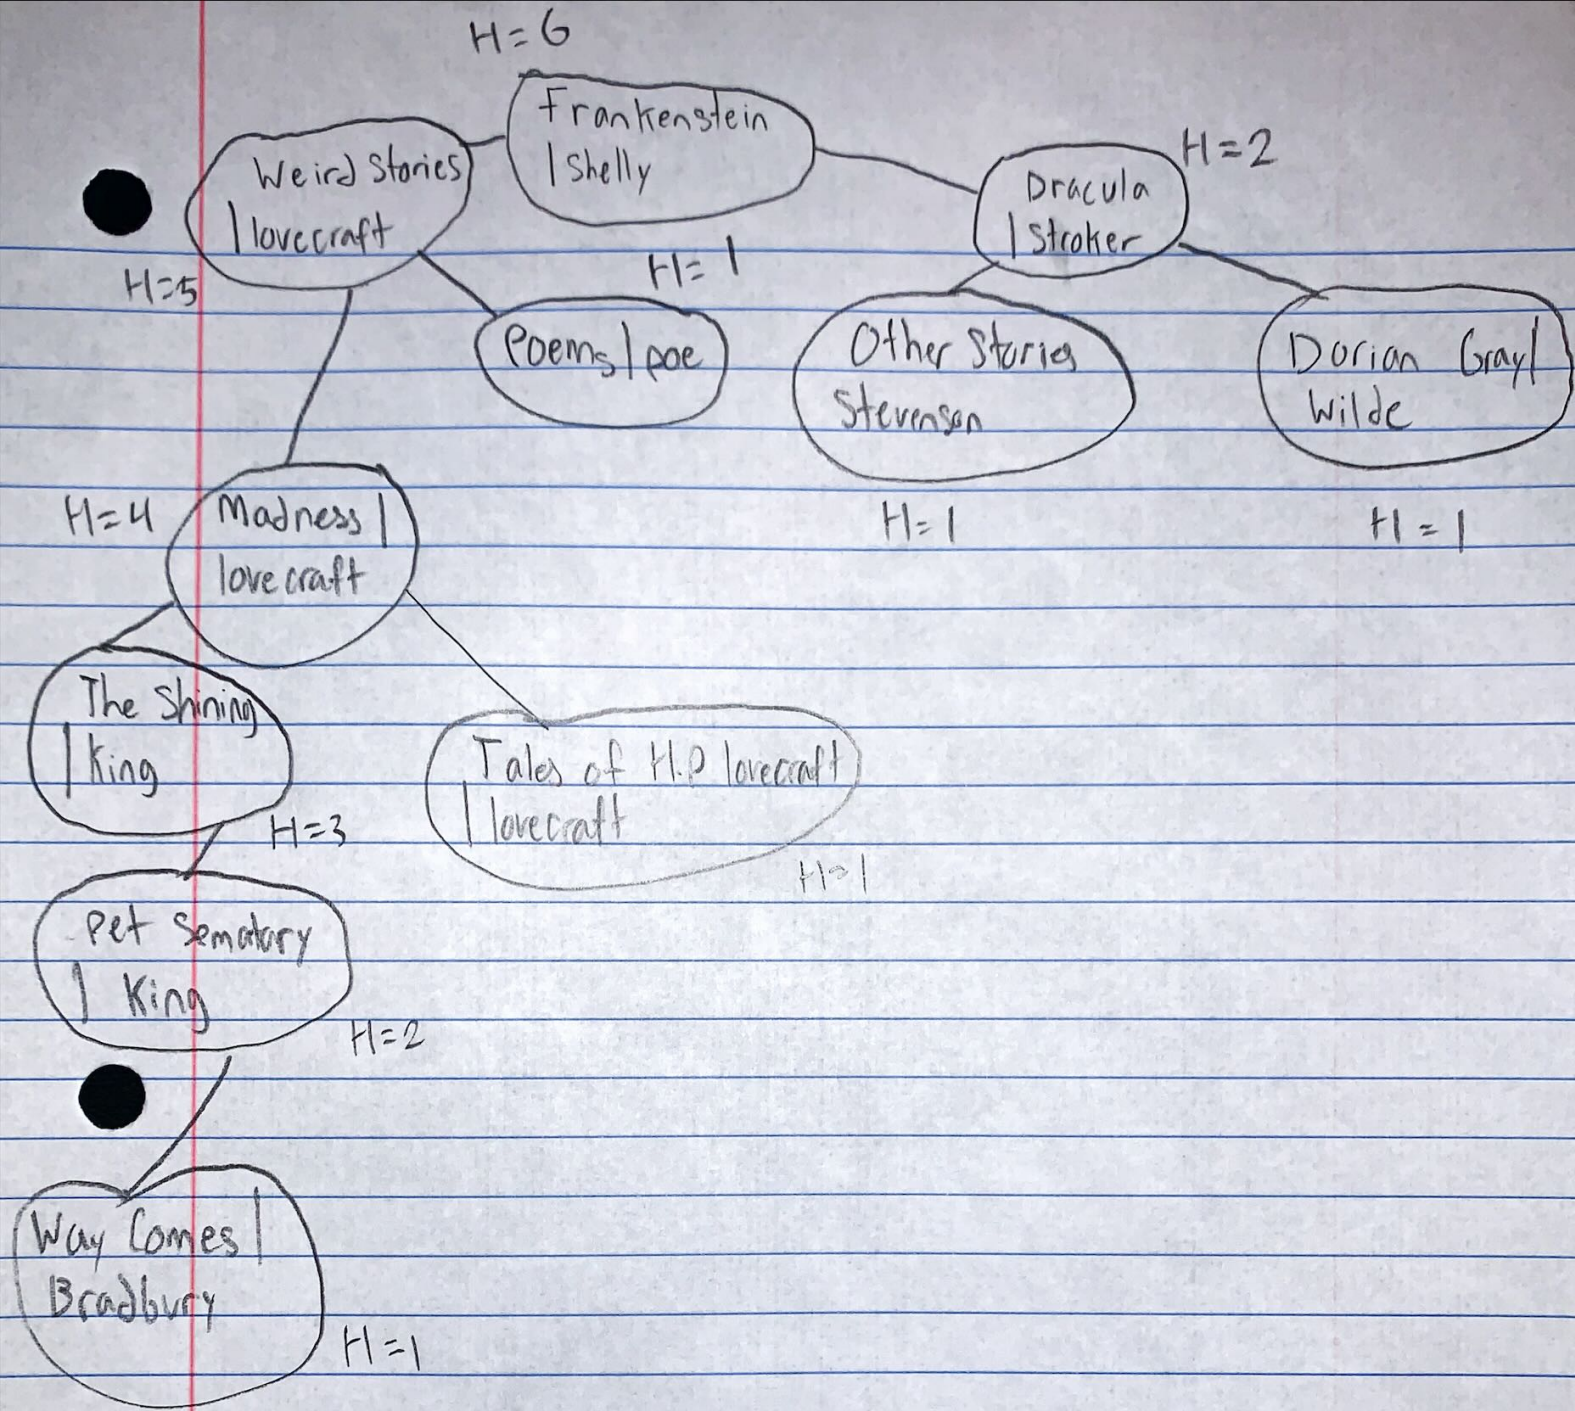 H=6
Frankenstein
| Shelly
Weird Stories
| lovecraft
H=5
Dracula
| Stroker
H=2
H=1
Poems | poe
Other Stories
Stevenson
H=1
Dorian Gray |
Wilde
H=1
H=4
Madness |
lovecraft
The Shining
| King
H=3
Tales of H.P lovecraft
| lovecraft
H=1
Pet Sematary
| King
H=2
Way Comes |
Bradbury
H=1